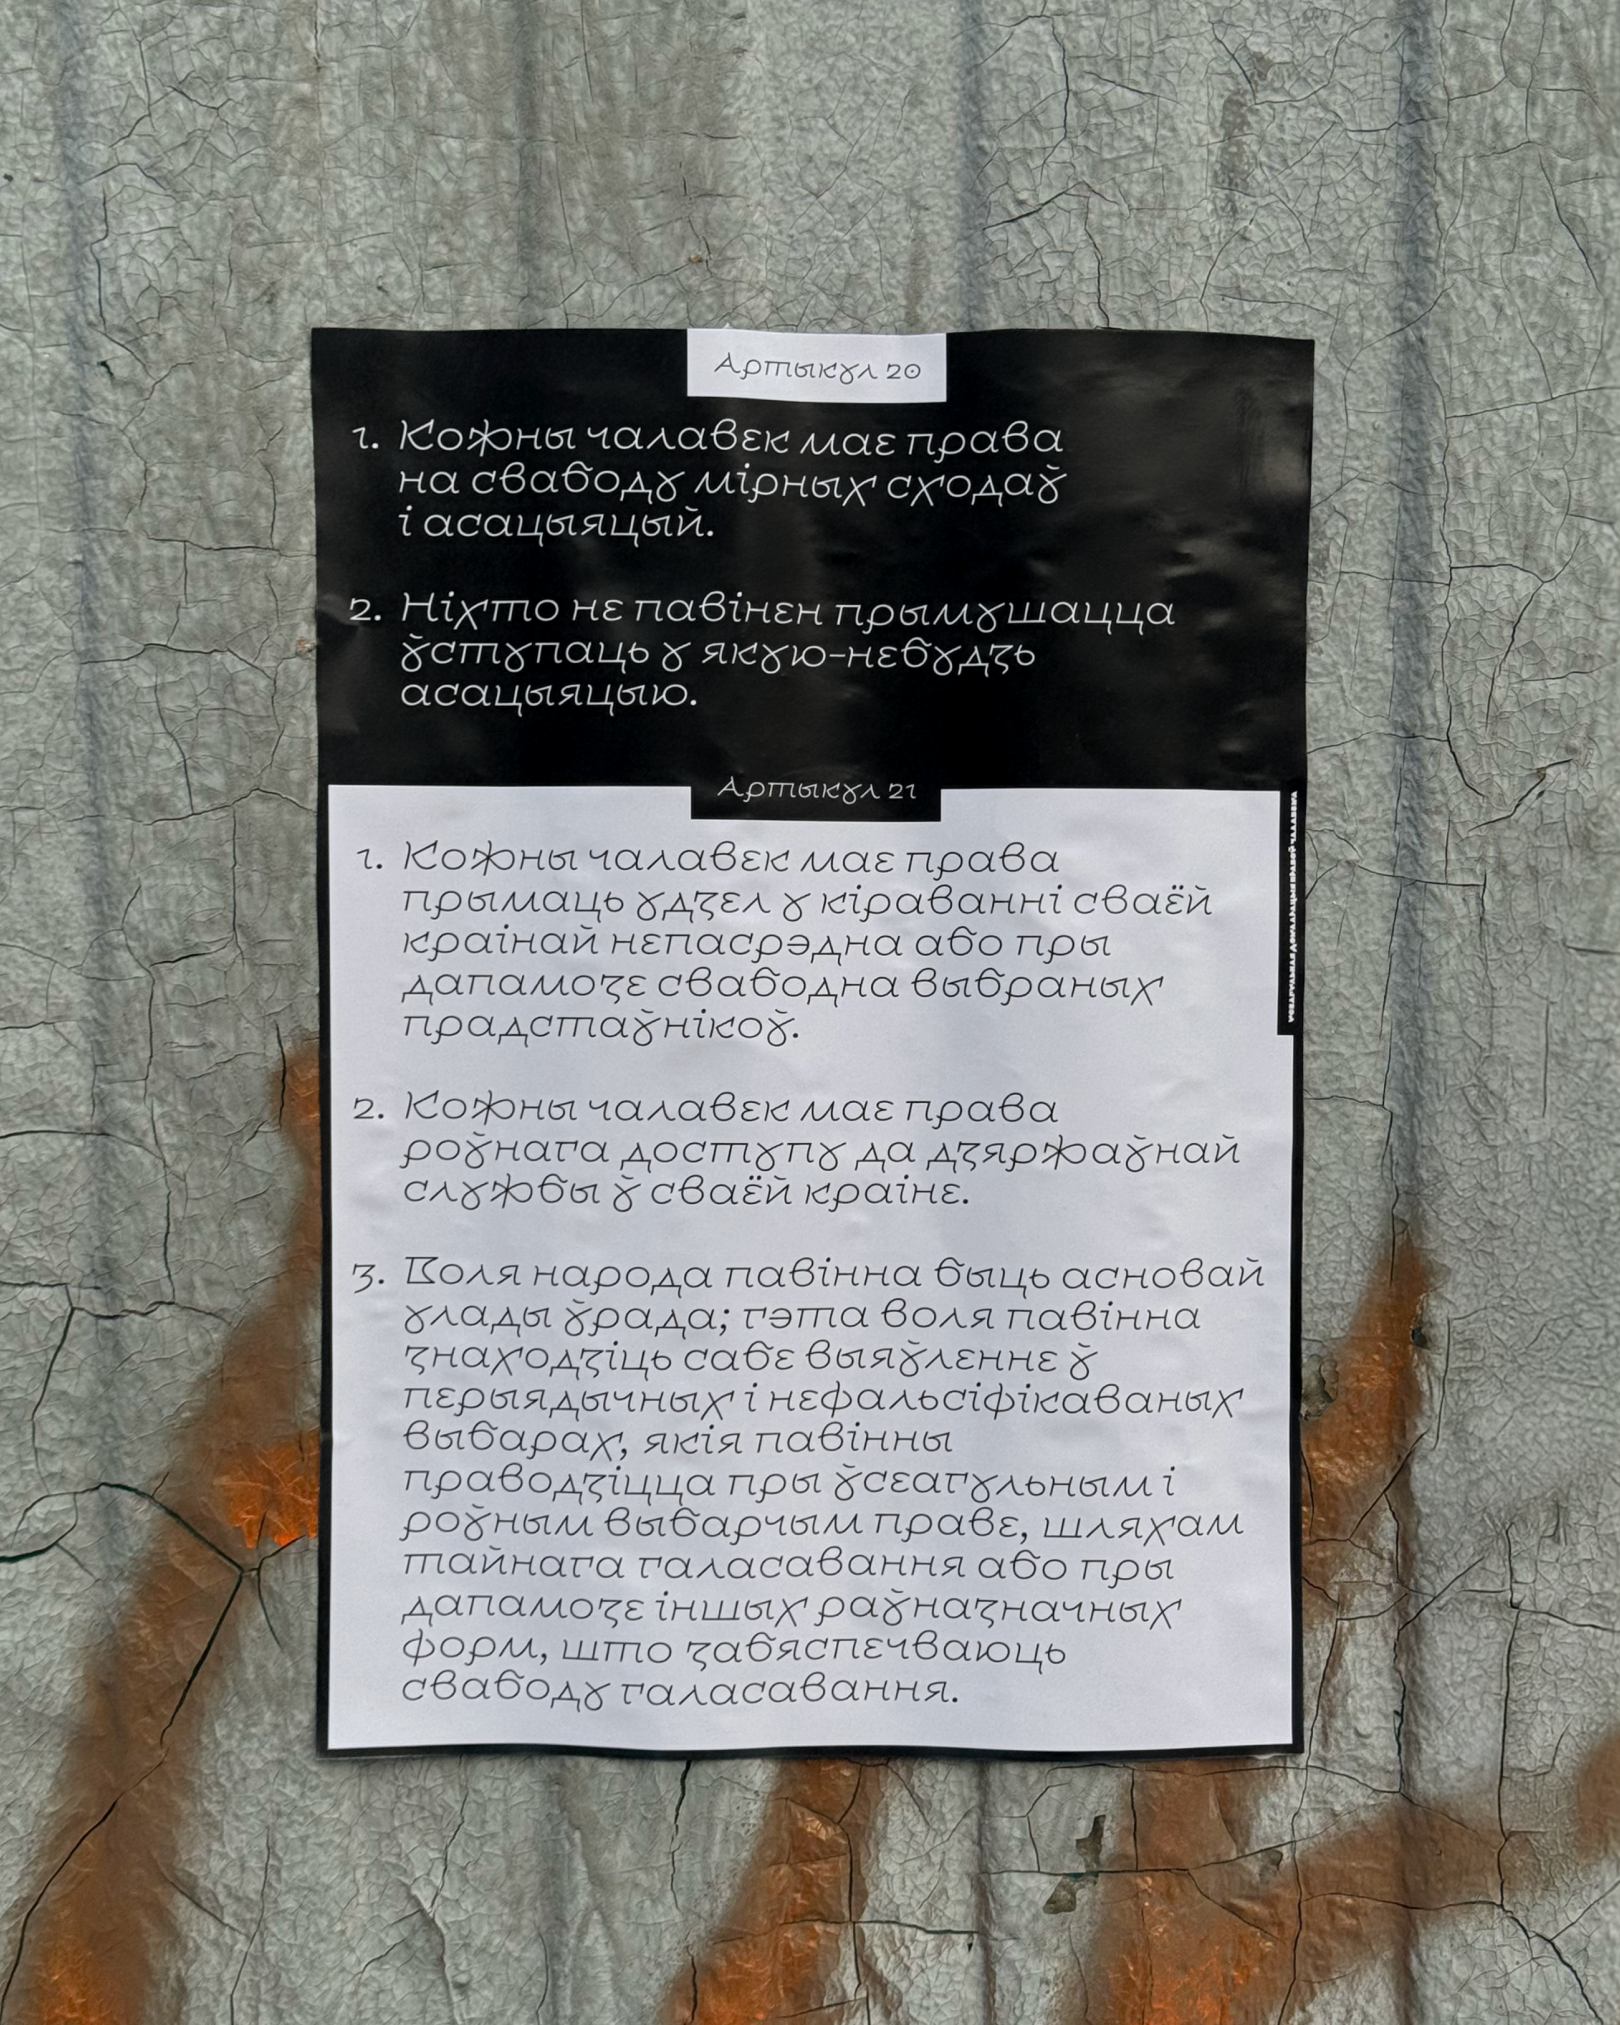 Артыкул 20
1. Кожны чалавек мае права
на свабоду мірных сходаў
і асацыяцый.
2. Ніхто не павінен прымушацца
ўступаць у якую-небудзь
асацыяцыю.
Артыкул 21
1. Кожны чалавек мае права
прымаць удзел у кіраванні сваёй
краінай непасрэдна або пры
дапамозе свабодна выбраных
прадстаўнікоў.
2. Кожны чалавек мае права
роўнага доступу да дзяржаўнай
службы ў сваёй краіне.
3. Воля народа павінна быць асновай
улады ўрада; гэта воля павінна
знаходзіць сабе выяўленне ў
перыядычных і нефальсіфікаваных
выбарах, якія павінны
праводзіцца пры ўсеагульным і
роўным выбарчым праве, шляхам
тайнага галасавання або пры
дапамозе іншых раўназначных
форм, што забяспечваюць
свабоду галасавання.